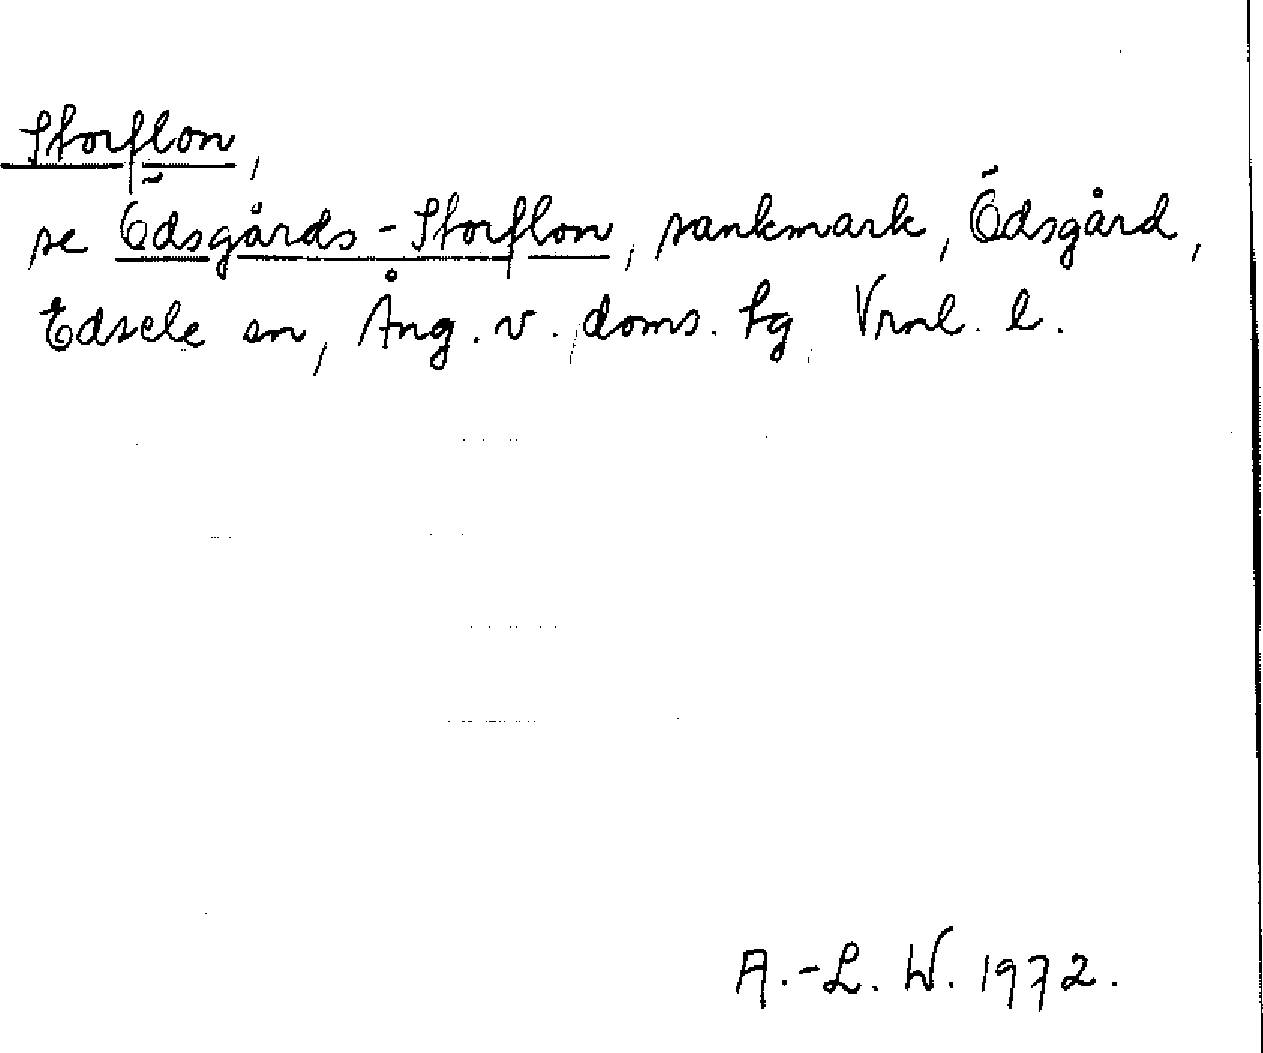 Storflon,
se Ödsgårds-Storflon, sankmark, Ödsgård,
Edsele sn, Ång. v. doms. tg Vrnl. l.
A.-L. W. 1972.